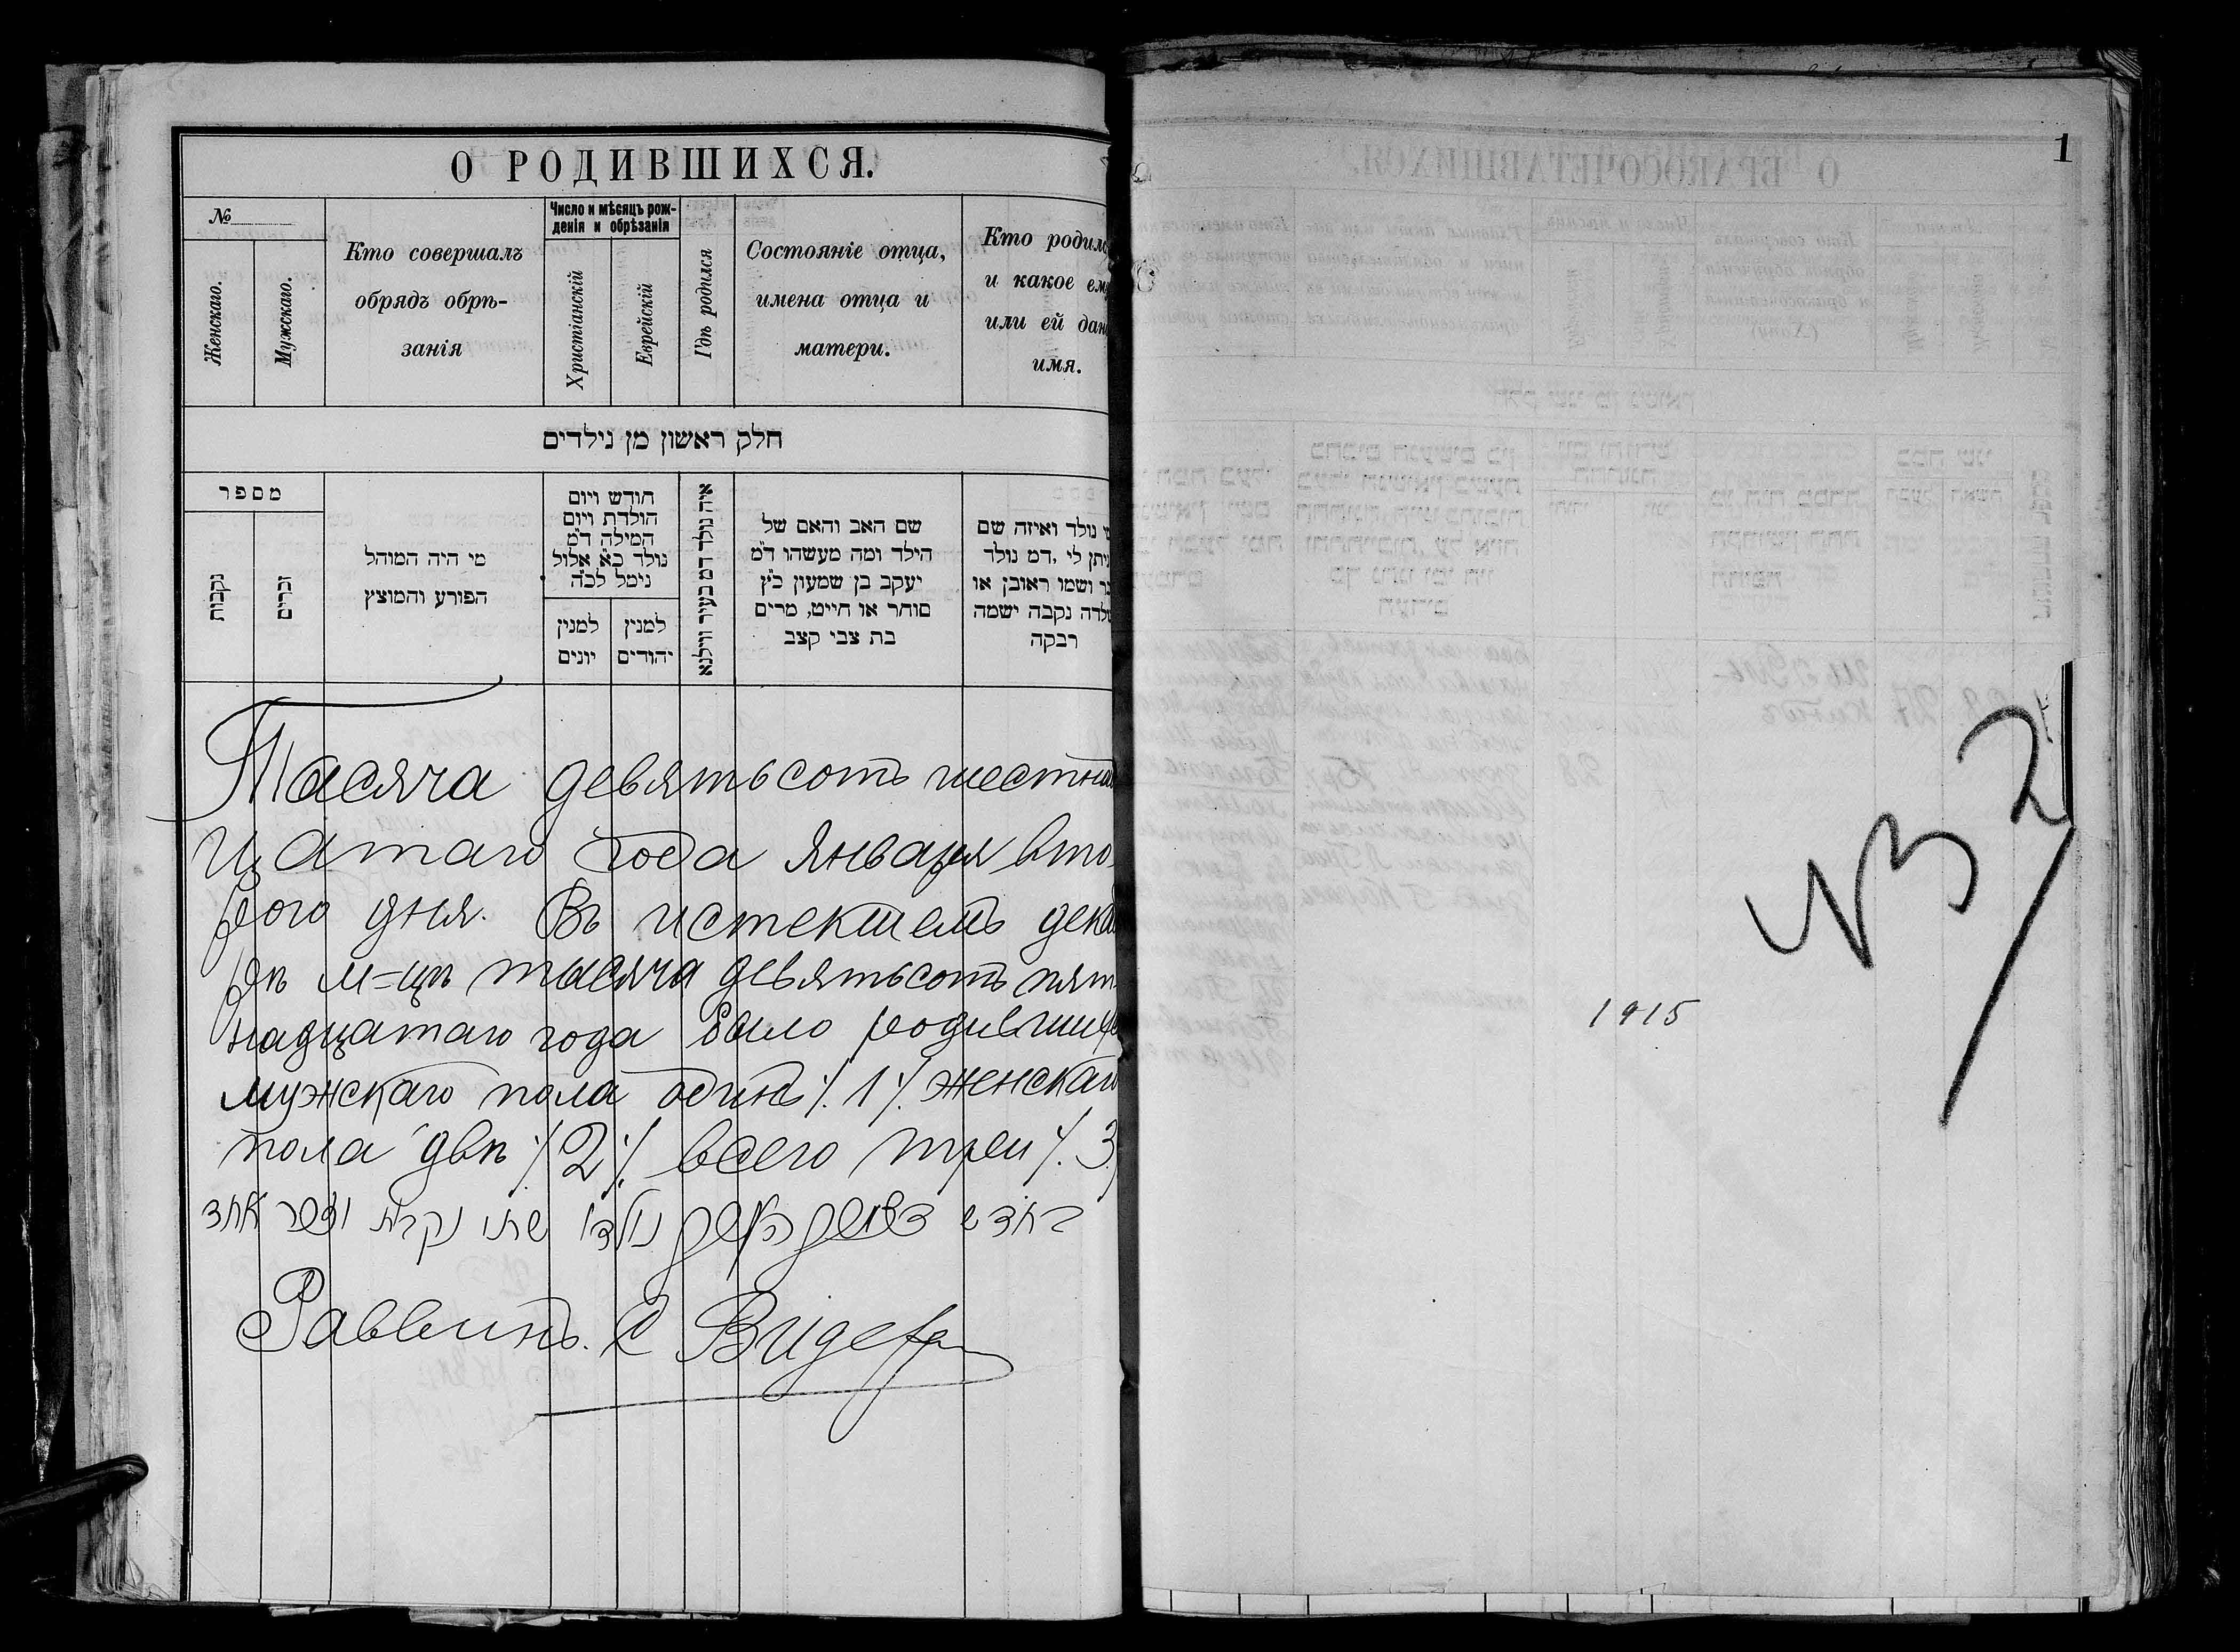 О РОДИВШИХСЯ.
№
Женскаго.
Мужскаго.
Кто совершалъ
обрядъ обрѣ-
занія
Число и мѣсяцъ рож-
денія и обрѣзанія
Христіанскій
Еврейскій
Гдѣ родился
Состояніе отца,
имена отца и
матери.
Кто родил
и какое ем
или ей дан
имя.
חלק ראשון מן נילדים
מספר
נקבות
זכרים
מי היה המוהל
הפורע והמוצץ
חודש ויום
הולדת ויום
המילה ד״מ
נולד כ״א אלול
נימל לכ״ה
למנין
יונים
למנין
יהודים
איה נולד דמ בעיר ווילנא
שם האב והאם של
הילד ומה מעשהו ד״מ
יעקב בן שמעון כ״ץ
סוחר או חייט, מרים
בת צבי קצב
נולד ואיזה שם
ניתן לי ,דמ נולד
ושמו ראובן או
נקבה ישמה
רבקה
Тысяча девятьсотъ шестна
цатаго года Января вто-
рого дня. Въ истекшемъ дека
рѣ м=цѣ тысяча девятьсотъ пят
надцатаго года было родивших
мужскаго пола одинъ ./. 1 ./. женскаго
пола двѣ ./. 2 ./. всего трои ./. 3
נולדו שתי נקבות וזכר אחד
Раввинъ.
1
1915